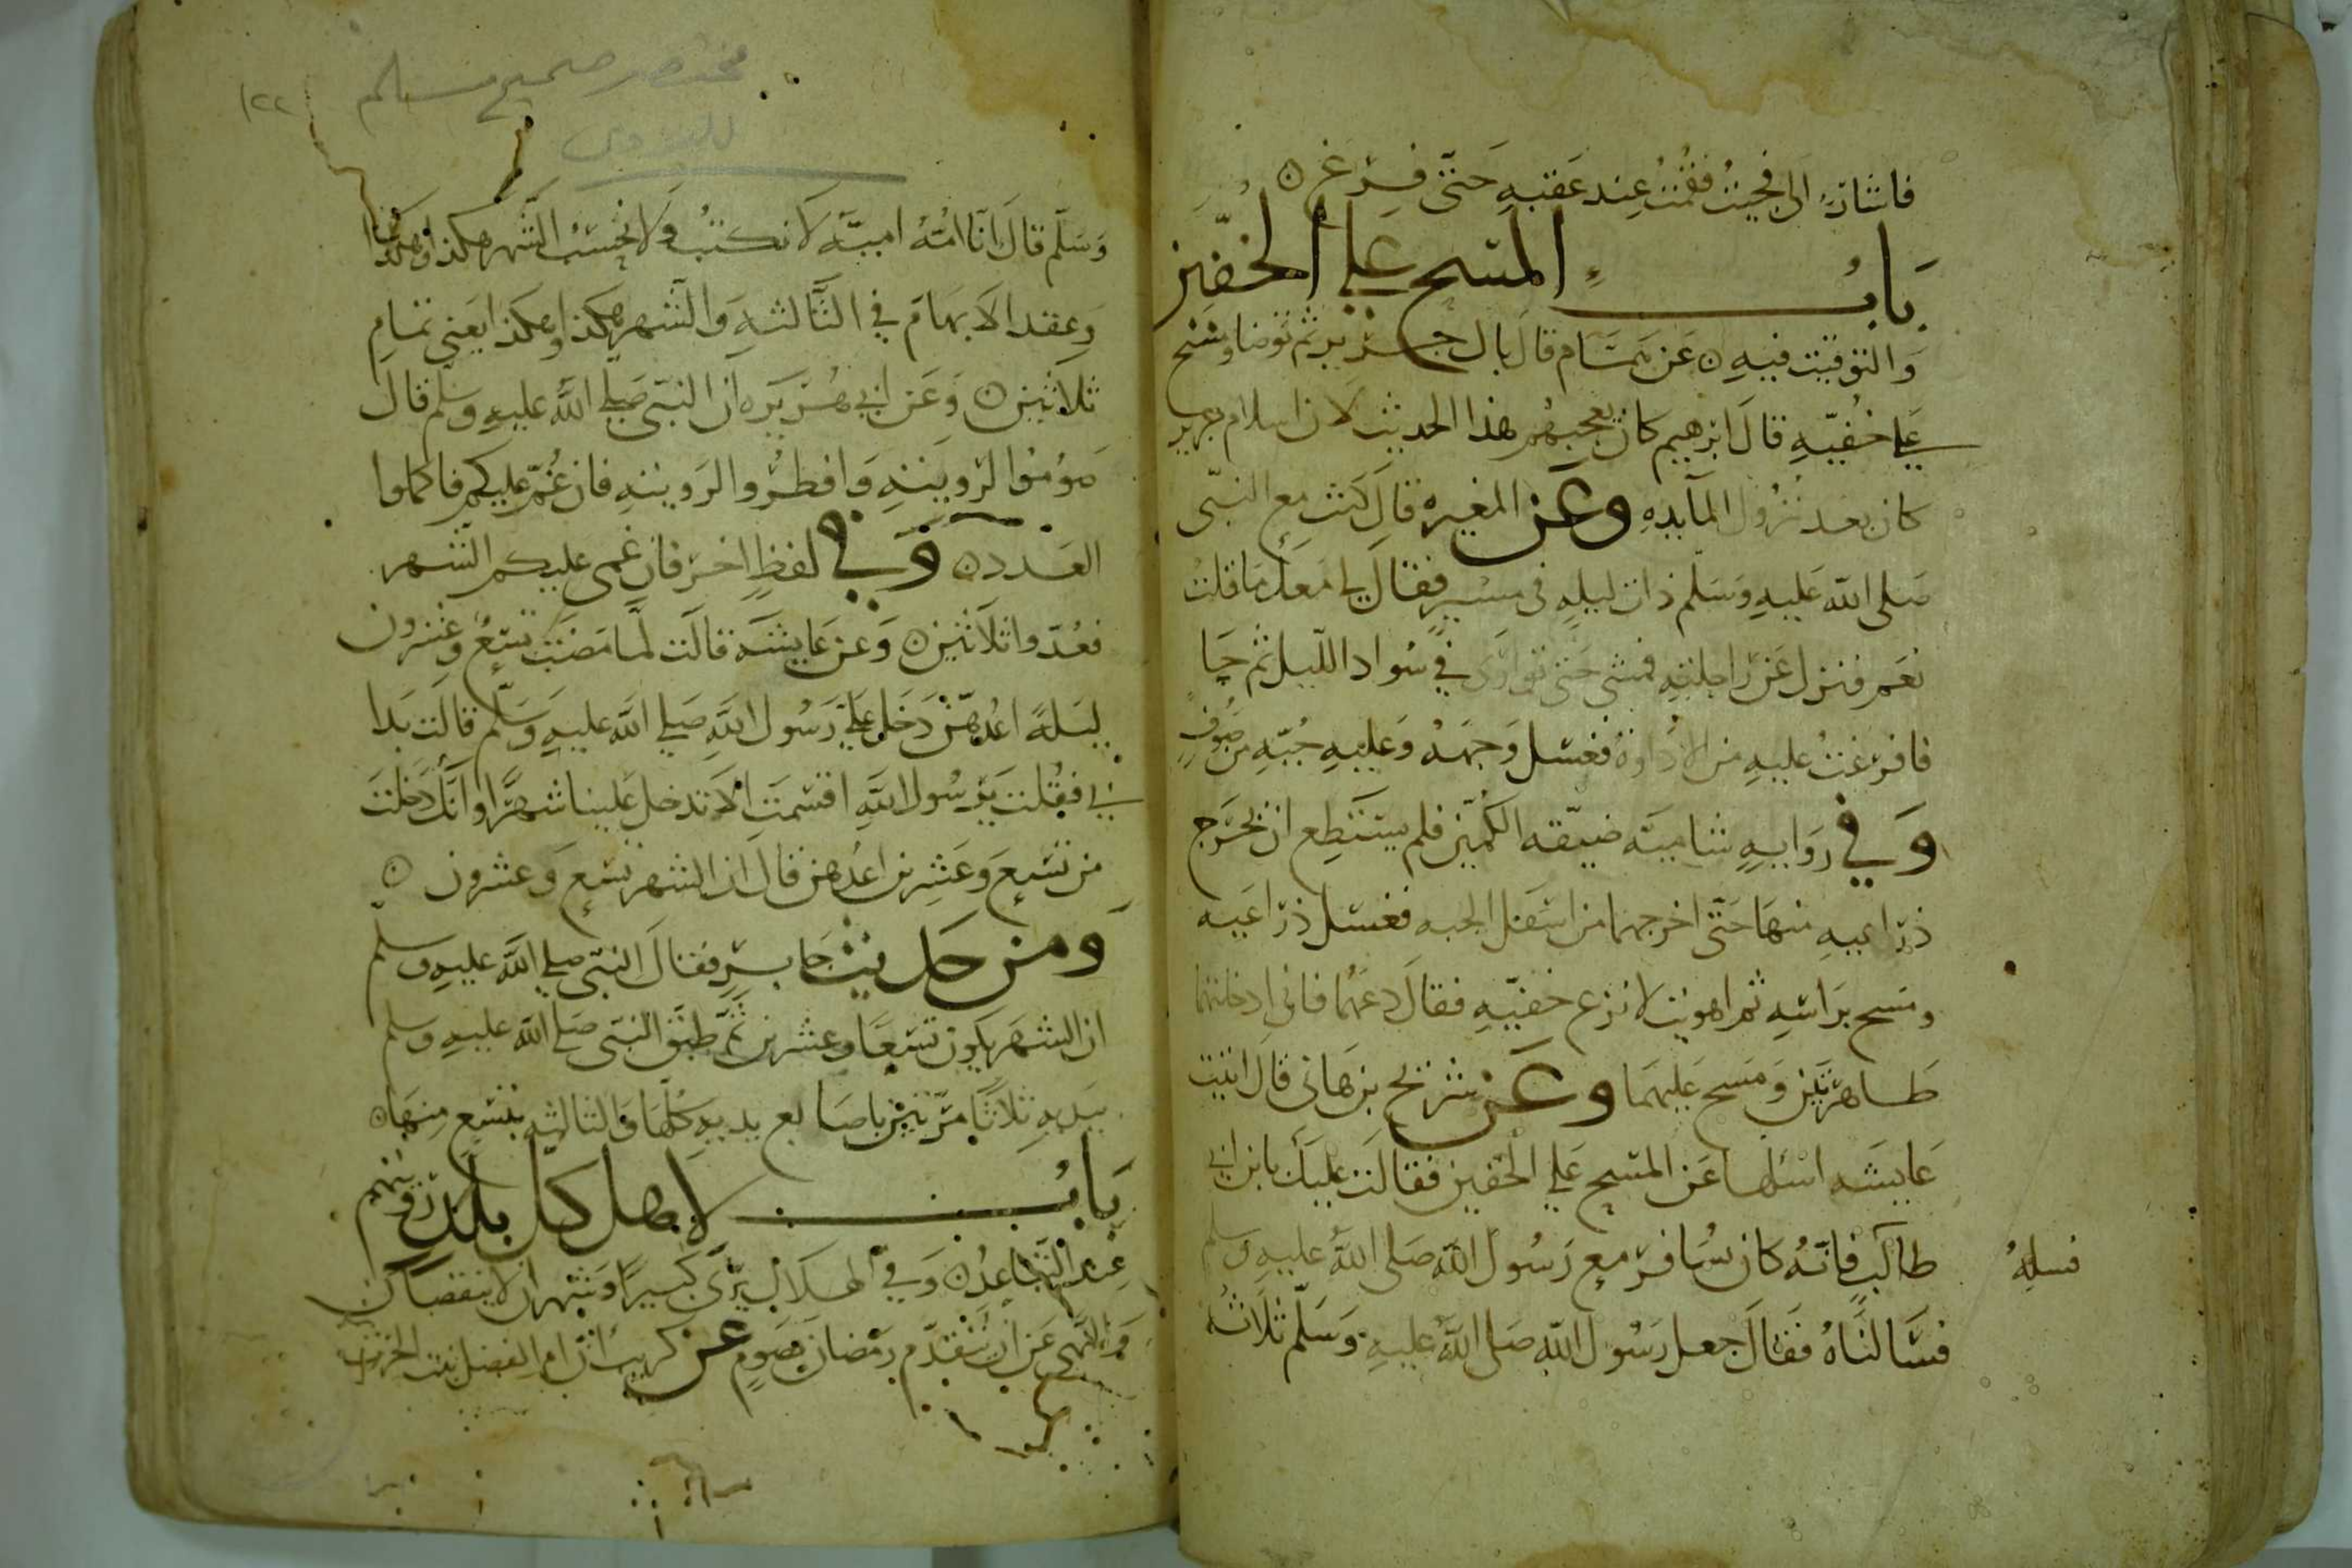 فاشار الى فجيت فقمت عند عقبه حتى فرغ ن
باب المسح على الخفين
والتوقيت فيه ن عن همام قال بال جرير ثم توضا ومسح
على خفيه قال ابرهيم كان يعجبهم هذا الحديث لان اسلام جرير
كان بعد نزول المايده وعن المغيره قال كنت مع النبى
صلى الله عليه وسلم ذات ليله فى مسير فقال لى امعك ما قلت
نعم فنزل عن راحلته فمشى حتى توارى في سواد الليل ثم جا
فافرغت عليه من الاداوه فغسل وجهه وعليه جبه من صوف
وفي روايه شاميه ضيقه الكمين فلم يستطع ان يخرج
ذراعيه منها حتى اخرجهما من اسفل الجبه فغسل ذراعيه
ومسح براسه ثم اهويت لانزع خفيه فقال دعهما فانى ادخلتهما
طاهرتين ومسح عليهما وعن شريح بن هانى قال اتيت
عايشه اسلها عن المسح على الخفين فقالت عليك بابن ابي
طالب فانه كان يسافر مع رسول الله صلى الله عليه وسلم
فسله
فسالناه فقال جعل رسول الله صلى الله عليه وسلم ثلاثه
مختصر صحيح مسلم
١٢٢
للنووى
وسلم قال انا امه اميه لا نكتب ولا نحسب الشهر هكذا وهكذا وهكذا
وعقد الابهام في الثالثه والشهر هكذا وهكذا يعنى تمام
ثلاثين ن وعن ابي هريره ان النبى صلى الله عليه وسلم قال
صوموا لرويته وافطروا لرويته فان غم عليكم فاكملوا
العدد ن وفي لفظ اخر فان غمى عليكم الشهر
فعدوا ثلاثين ن وعن عايشه قالت لما مضت تسع وعشرون
ليله اعدهن دخل على رسول الله صلى الله عليه وسلم قالت بدا
بي فقلت يرسول الله اقسمت ان لا تدخل علينا شهرا وانك دخلت
من تسع وعشرين اعدهن قال ان الشهر تسع وعشرون ن
ومن حديث جابر فقال النبى صلى الله عليه وسلم
ان الشهر يكون تسعا وعشرين ثم طبق النبى صلى الله عليه وسلم
بيديه ثلاثا مرتين باصابع يديه كلها والثالثه بتسع منها ن
باب لاهل كل بلد رويتهم
عند التباعد ن وفي الهلال يرى كبيرا وشهران لا ينقصان
والنهى عن ان يتقدم رمضان بصوم عن كريب ان ام الفضل بنت الحرث